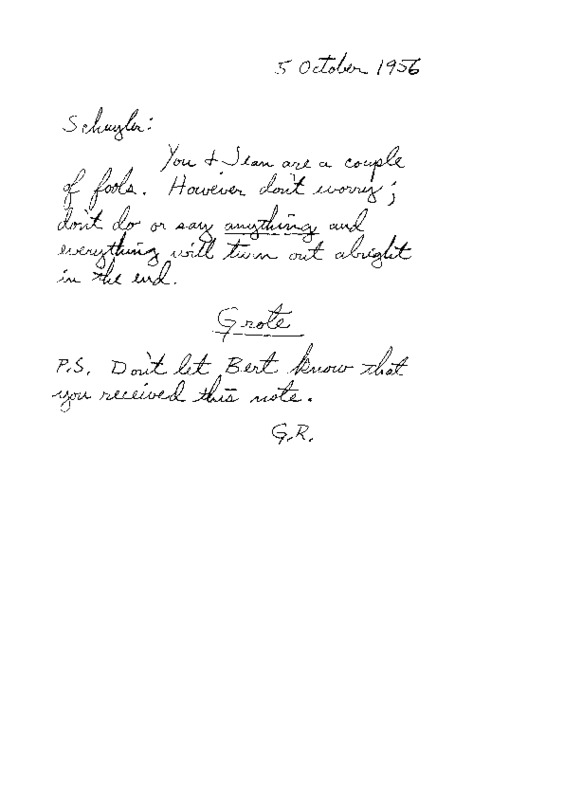 5 October 1956
Schuyler:
You + Jean are a couple
of fools. However don't worry;
don't do or say anything and
everything will turn out alright
in the end.
Grote
P.S. Don't let Bert know that
you received this note.
G.R.